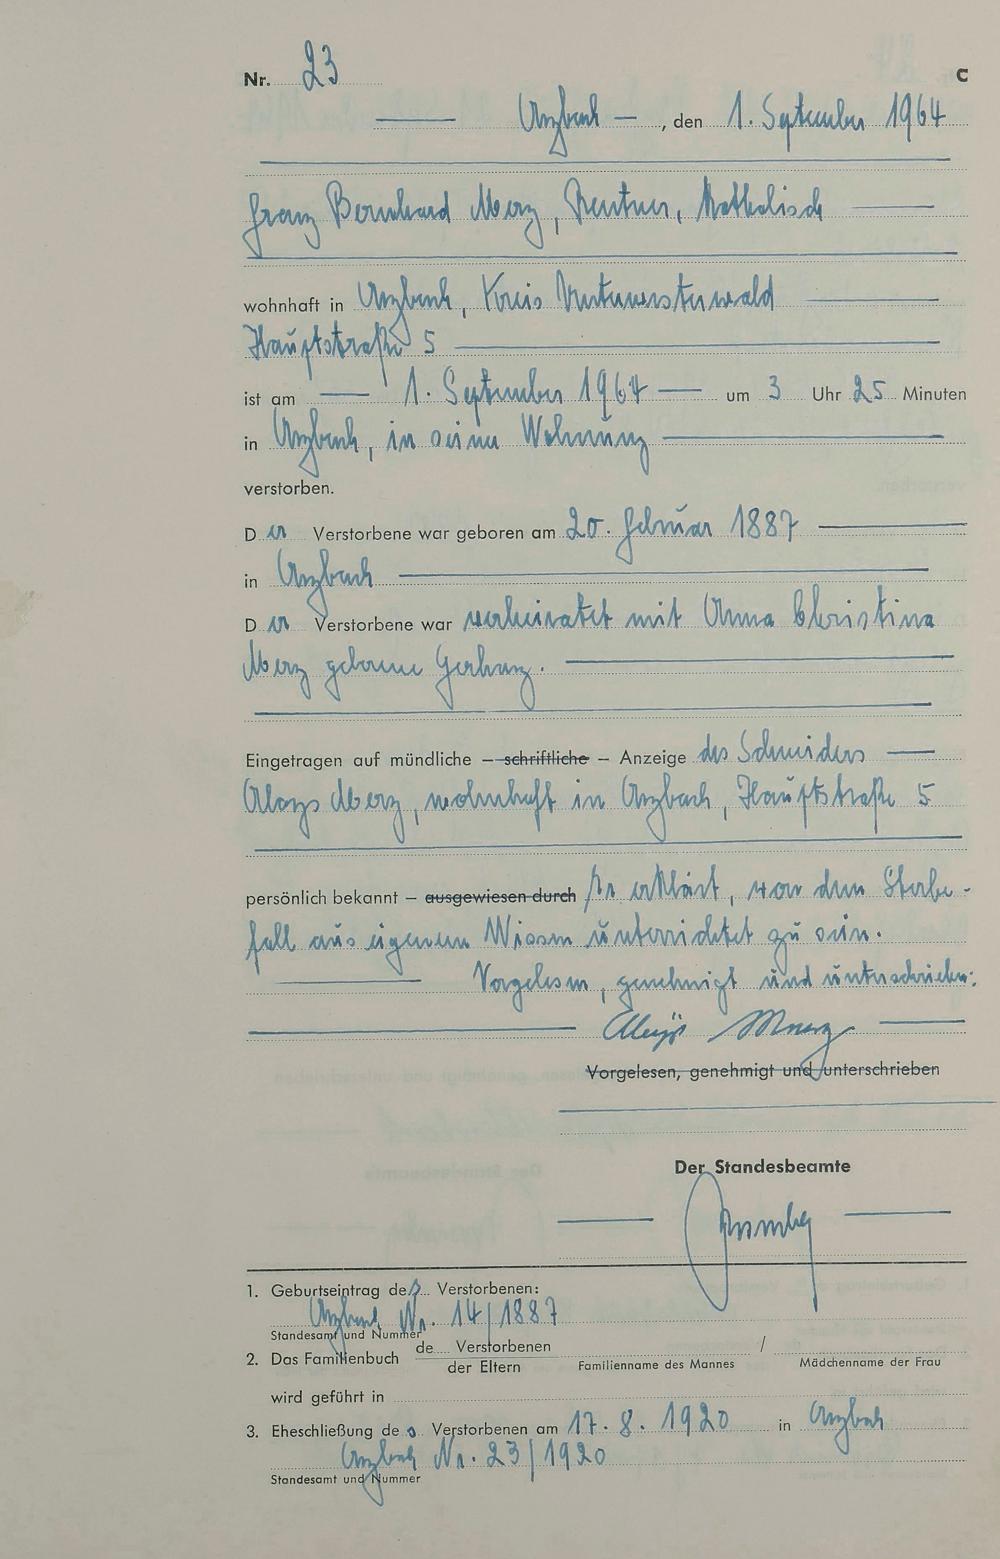 Nr. 23
C
Arzbach —, den 1. September 1964
Franz Bernhard Merz, Rentner, katholisch
wohnhaft in Arzbach, Kreis Unterwesterwald
Hauptstraße 5
ist am — 1. September 1964 — um 3 Uhr 25 Minuten
in Arzbach, in seiner Wohnung
verstorben.
Der Verstorbene war geboren am 20. Februar 1887
in Arzbach
Der Verstorbene war verheiratet mit Anna Christina
Merz geborene Gerharz.
Eingetragen auf mündliche – schriftliche – Anzeige des Schneiders —
Aloys Merz, wohnhaft in Arzbach, Hauptstraße 5
persönlich bekannt – ausgewiesen durch Er erklärt, von dem Sterbe-
fall aus eigenem Wissen unterrichtet zu sein.
Vorgelesen, genehmigt und unterschrieben:
Aloys Merz
Vorgelesen, genehmigt und unterschrieben
Der Standesbeamte
1. Geburtseintrag des Verstorbenen:
Arzbach Nr. 14/1887
Standesamt und Nummer
2. Das Familienbuch de Verstorbenen / 
der Eltern Familienname des Mannes Mädchenname der Frau
wird geführt in
3. Eheschließung des Verstorbenen am 17. 8. 1920 in Arzbach
Arzbach Nr. 23/1920
Standesamt und Nummer